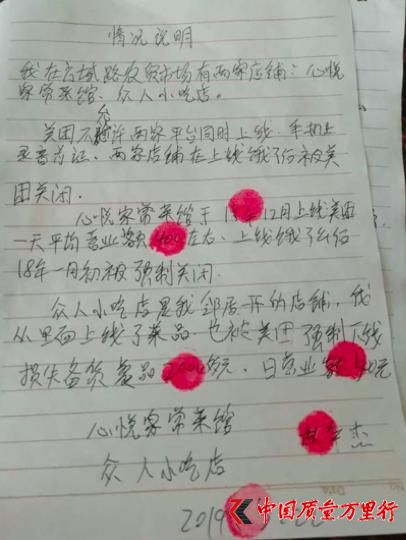 情况说明
我在云城路农贸市场有两家店铺：心悦
家常菜馆、众人小吃店。
美团不允许两家平台同时上线，手机上
录音为证，两家店铺在上线饿了么后被美
团关闭.
心悦家常菜馆于 年12月上线美团
一天平均营业额 左右、上线饿了么后
18年一月初被强制关闭.
众人小吃店是我邻居开的店铺，我
从里面上线了菜品，也被美团强制下线
损失备货 元、日营业额 40元
心悦家常菜馆
众人小吃店
2019
中国质量万里行